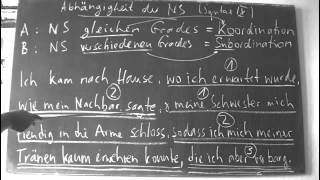 Abhängigkeit des NS (Syntax)
A: NS gleichen Grades = Koordination
B: NS verschiedenen Grades = Subordination
Ich kam nach Hause, wo ich erwartet wurde, ①
wie mein Nachbar sagte, ② & meine Schwester mich ①
in die Arme schloss, sodass ich mich meiner ②
Tränen kaum erwehren konnte, die ich aber verbarg. ③